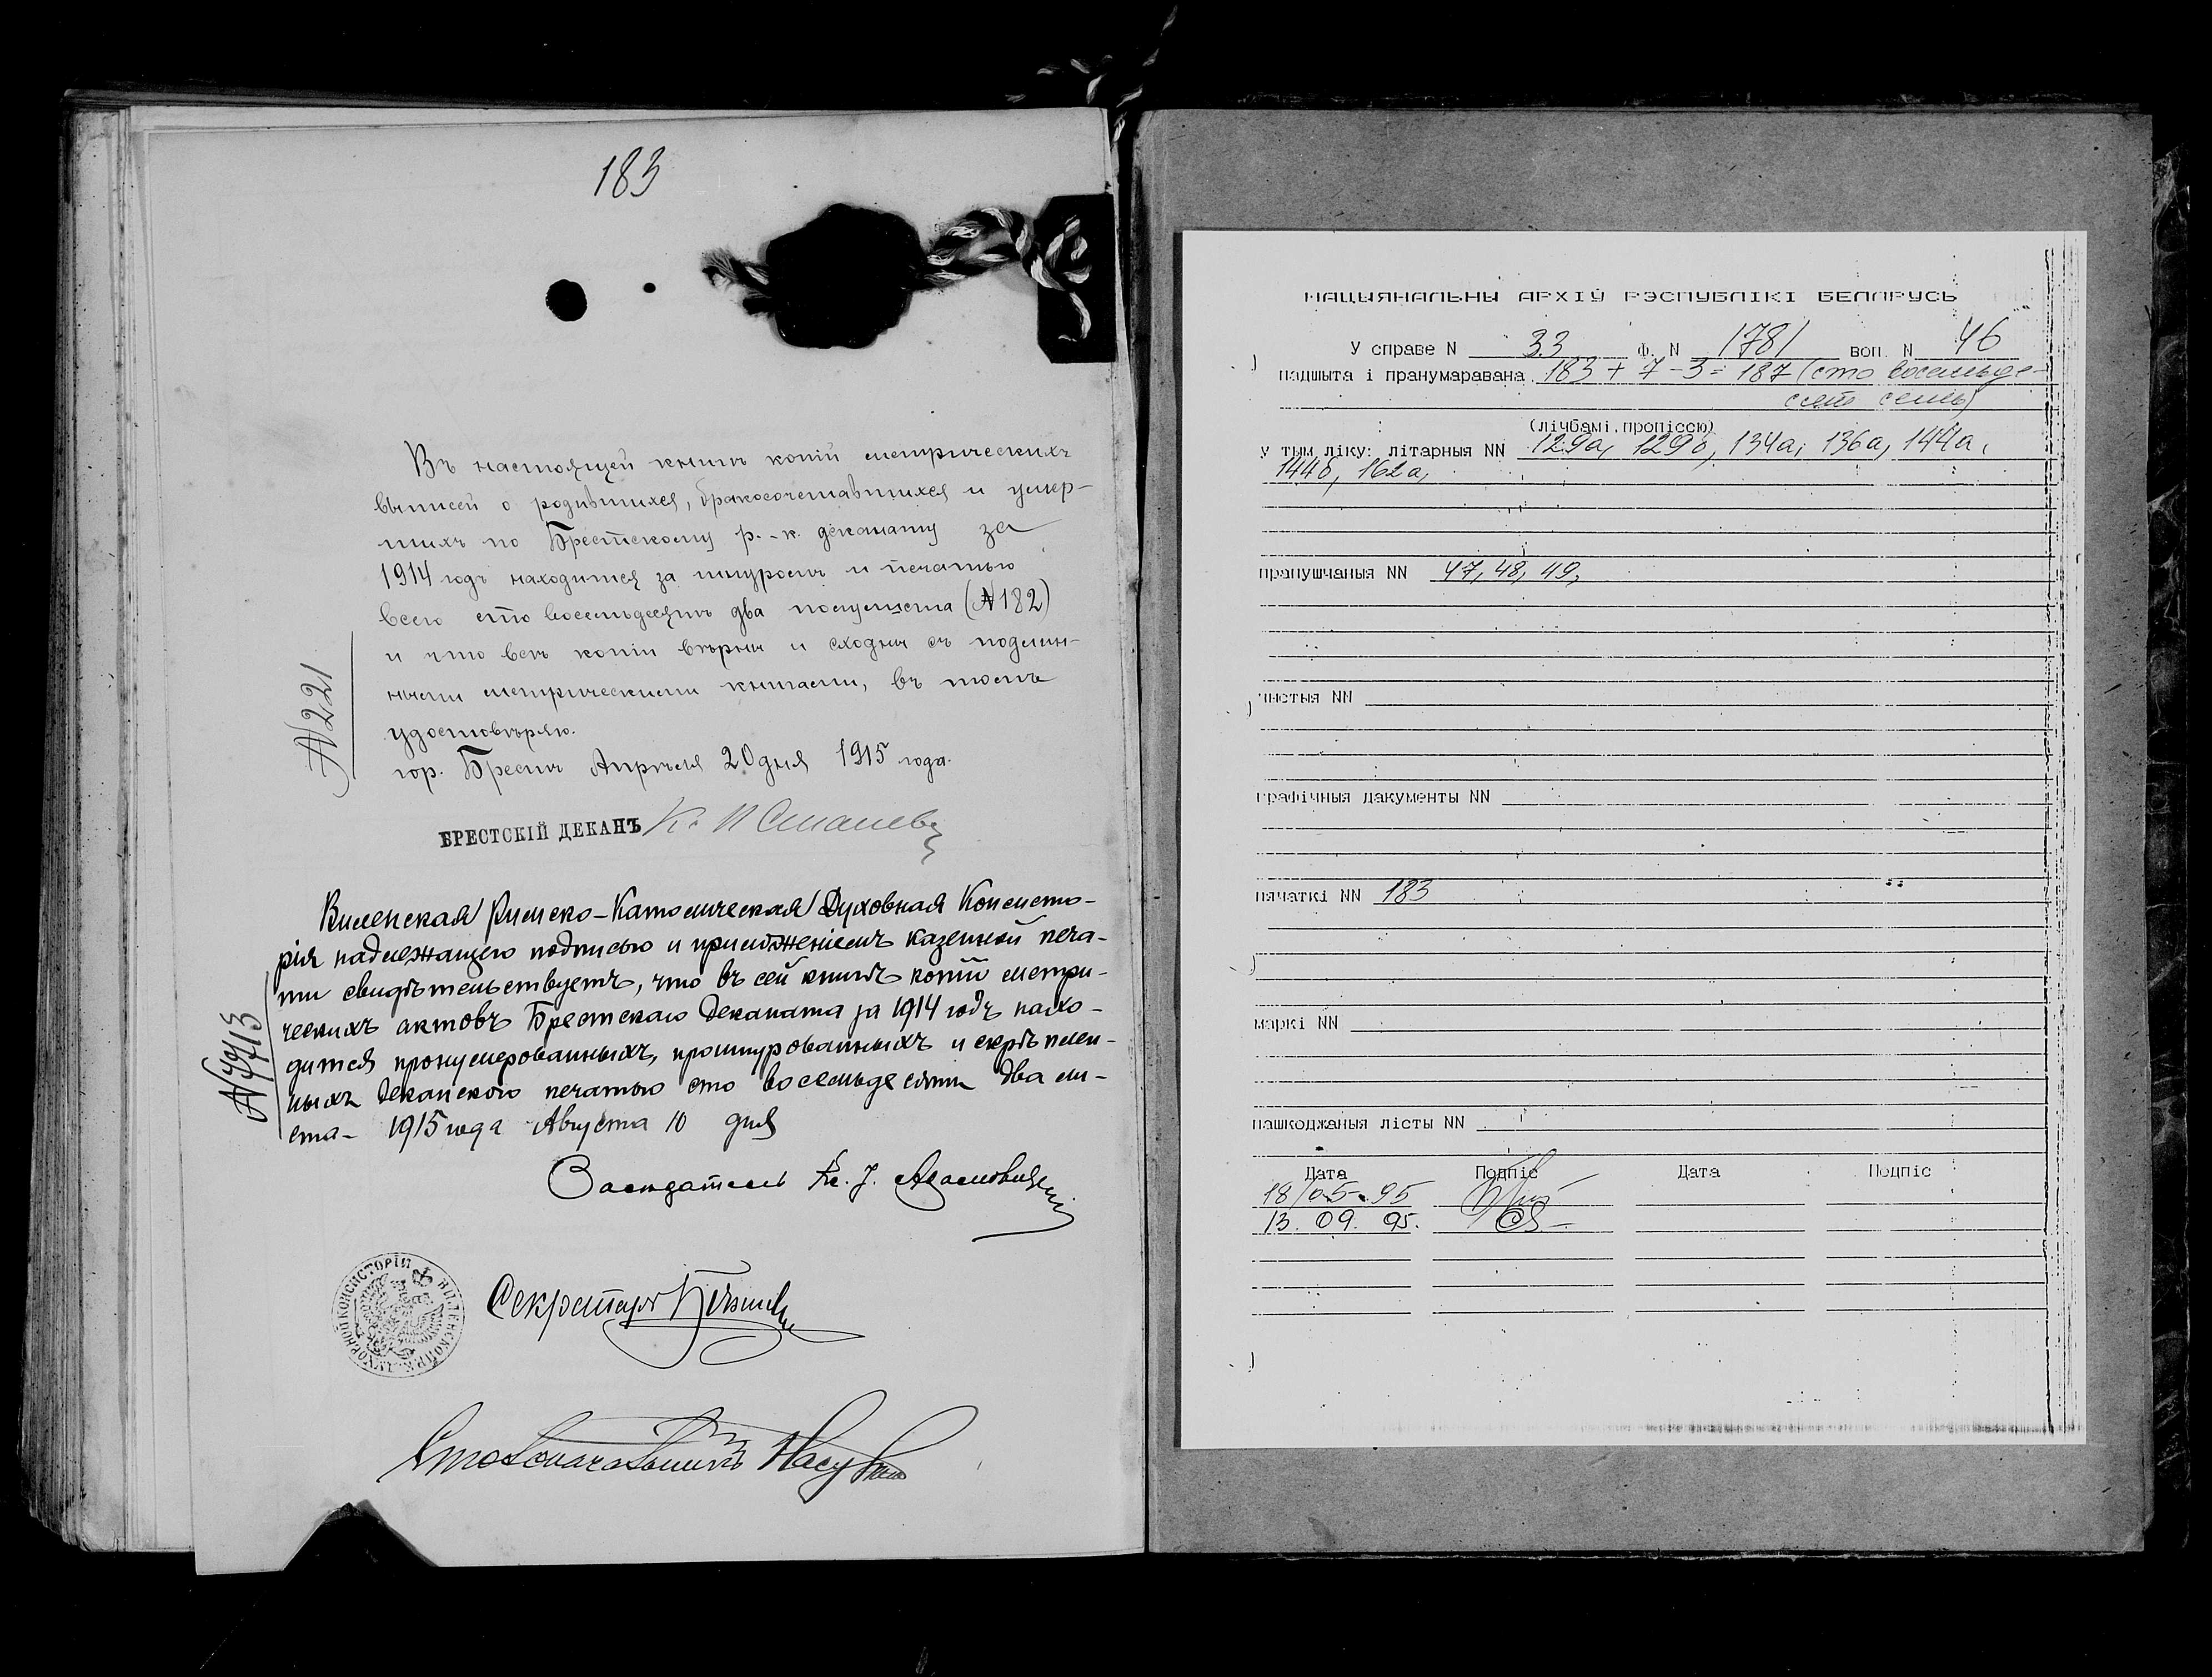 183
Въ настоящей книгѣ копій метрическихъ
выписей о родившихся, бракосочетавшихся и умер-
шихъ по Брестскому р.-к. деканату за
1914 годъ находится за шнуромъ и печатью
всего сто восемьдесятъ два полулиста (№182)
и что всѣ копіи вѣрны и сходны съ подлин-
ными метрическими книгами, въ томъ
удостовѣряю.
гор. Брестъ Апрѣля 20 дня 1915 года.
№221
БРЕСТСКІЙ ДЕКАНЪ
Виленская Римско-Католическая Духовная Консисто-
рія надлежащею подписью и приложеніемъ казенной печа-
ти свидѣтельствуетъ, что въ сей книгѣ копій метри-
ческихъ актовъ Брестскаго Деканата за 1914 годъ нахо-
дится пронумерованныхъ, прошнурованныхъ и скрѣплен-
ныхъ Деканскою печатью сто восемьдесятъ два ли-
ста- 1915 года Августа 10 дня
Засѣдатель Кс. J.
Секретарь
Столоначальникъ
НАЦЫЯНАЛЬНЫ АРХІЎ РЭСПУБЛІКІ БЕЛАРУСЬ
У справе N 33 Ф. N 1781 воп. N 46
падшыта і пранумаравана 183 + 7 - 3 = 187 (сто восемьде-
сят семь)
(лічбамі, пропіссю)
у тым ліку: літарныя NN 129а, 129б, 134а, 136а, 144а,
144б, 162а,
прапушчаныя NN 47, 48, 49,
чыстыя NN
графічныя дакументы NN
пячаткі NN 183
маркі NN
пашкоджаныя лісты NN
Дата Подпіс Дата Подпіс
18/05-95
13. 09. 95.